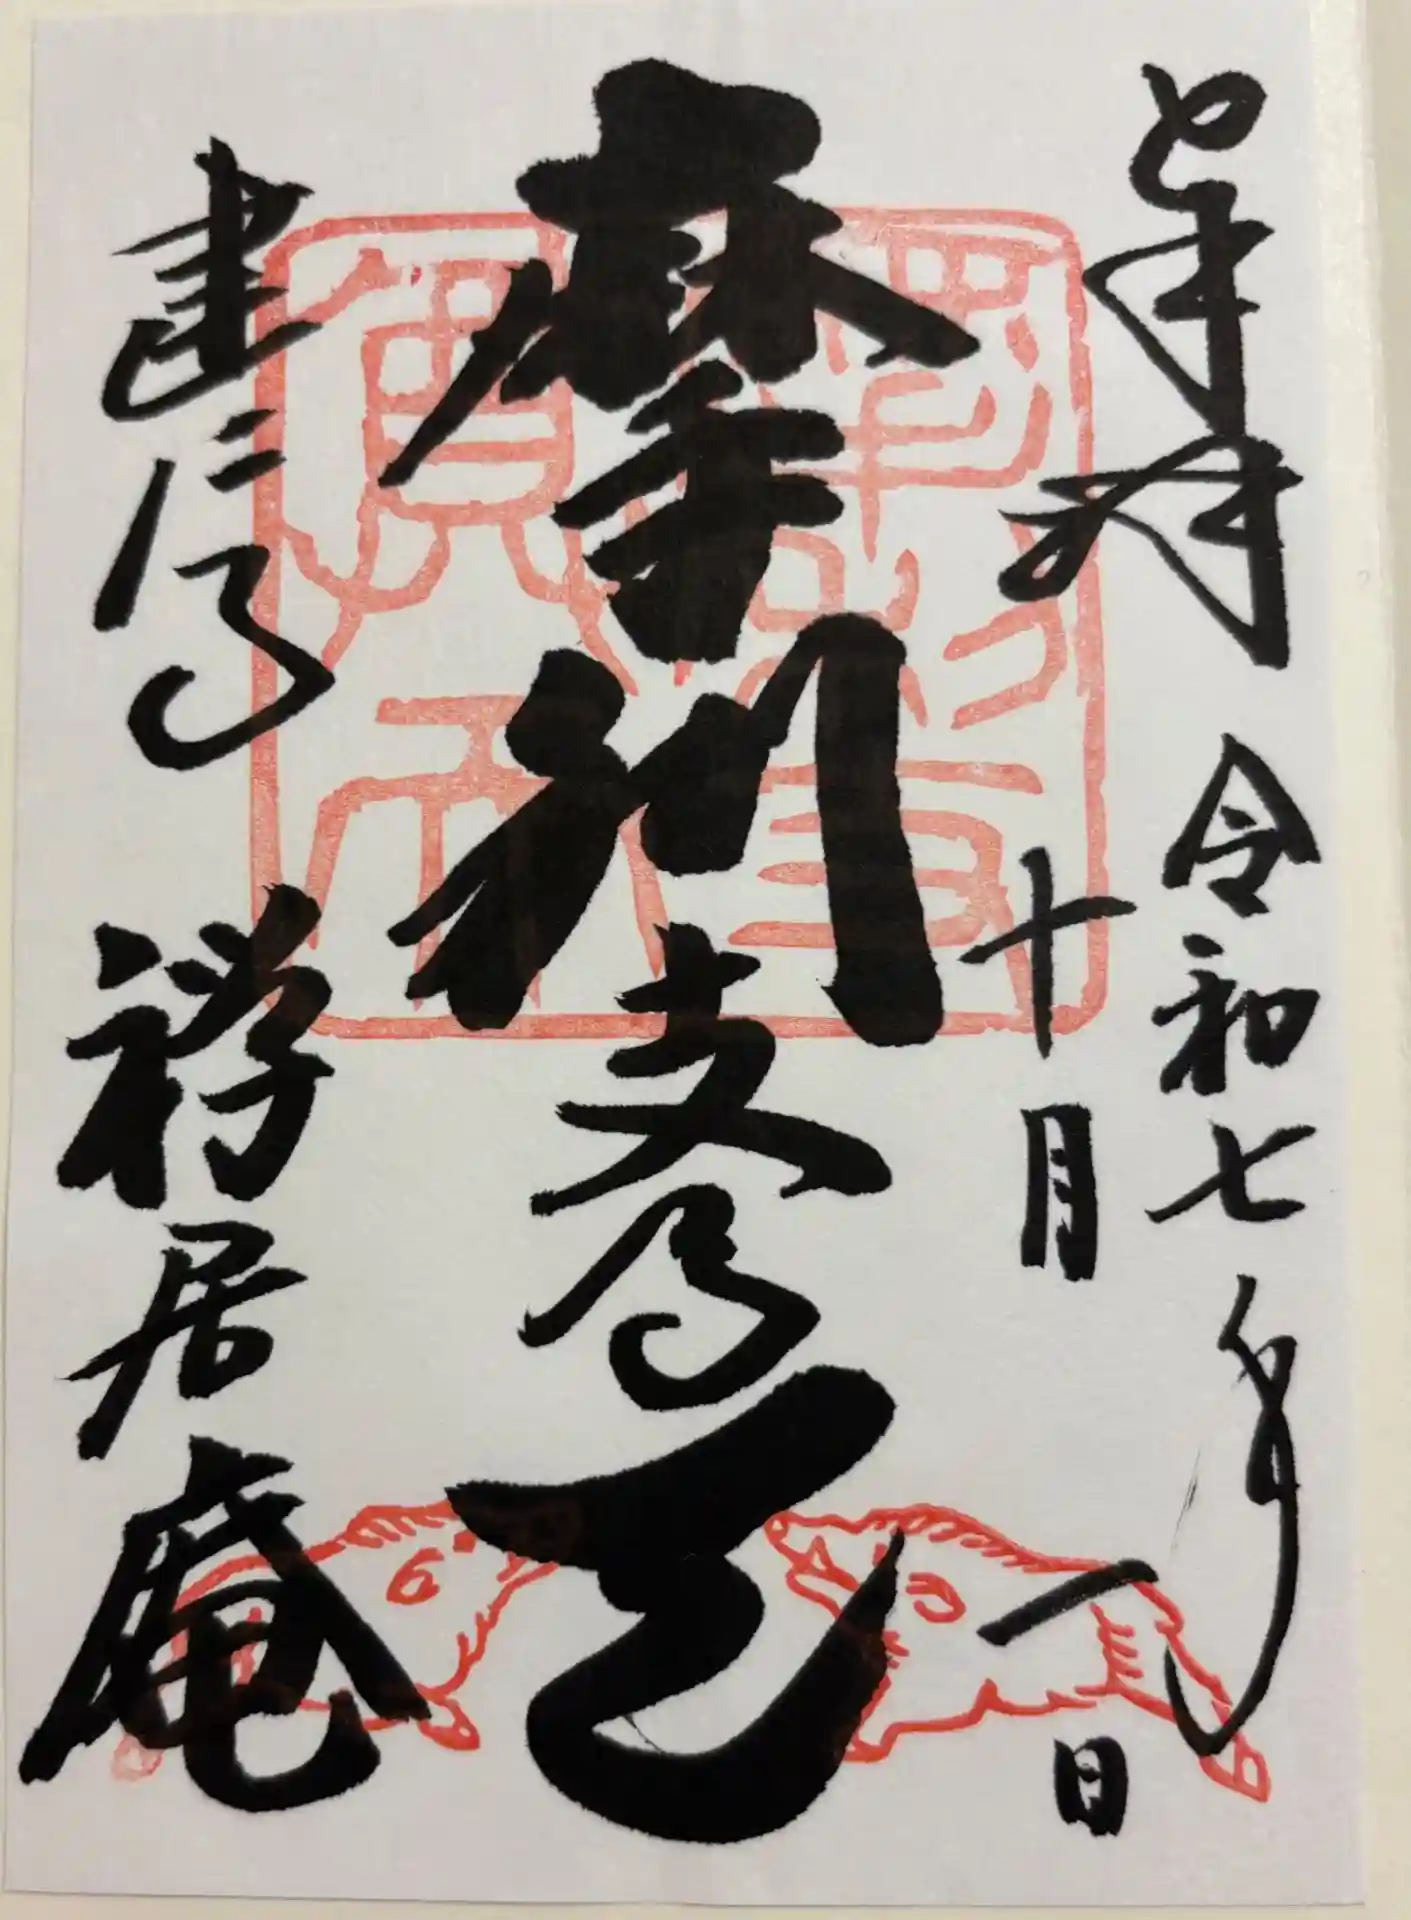 奉拝 令和七年
十月一日
摩利支尊天
建仁寺 禅居庵